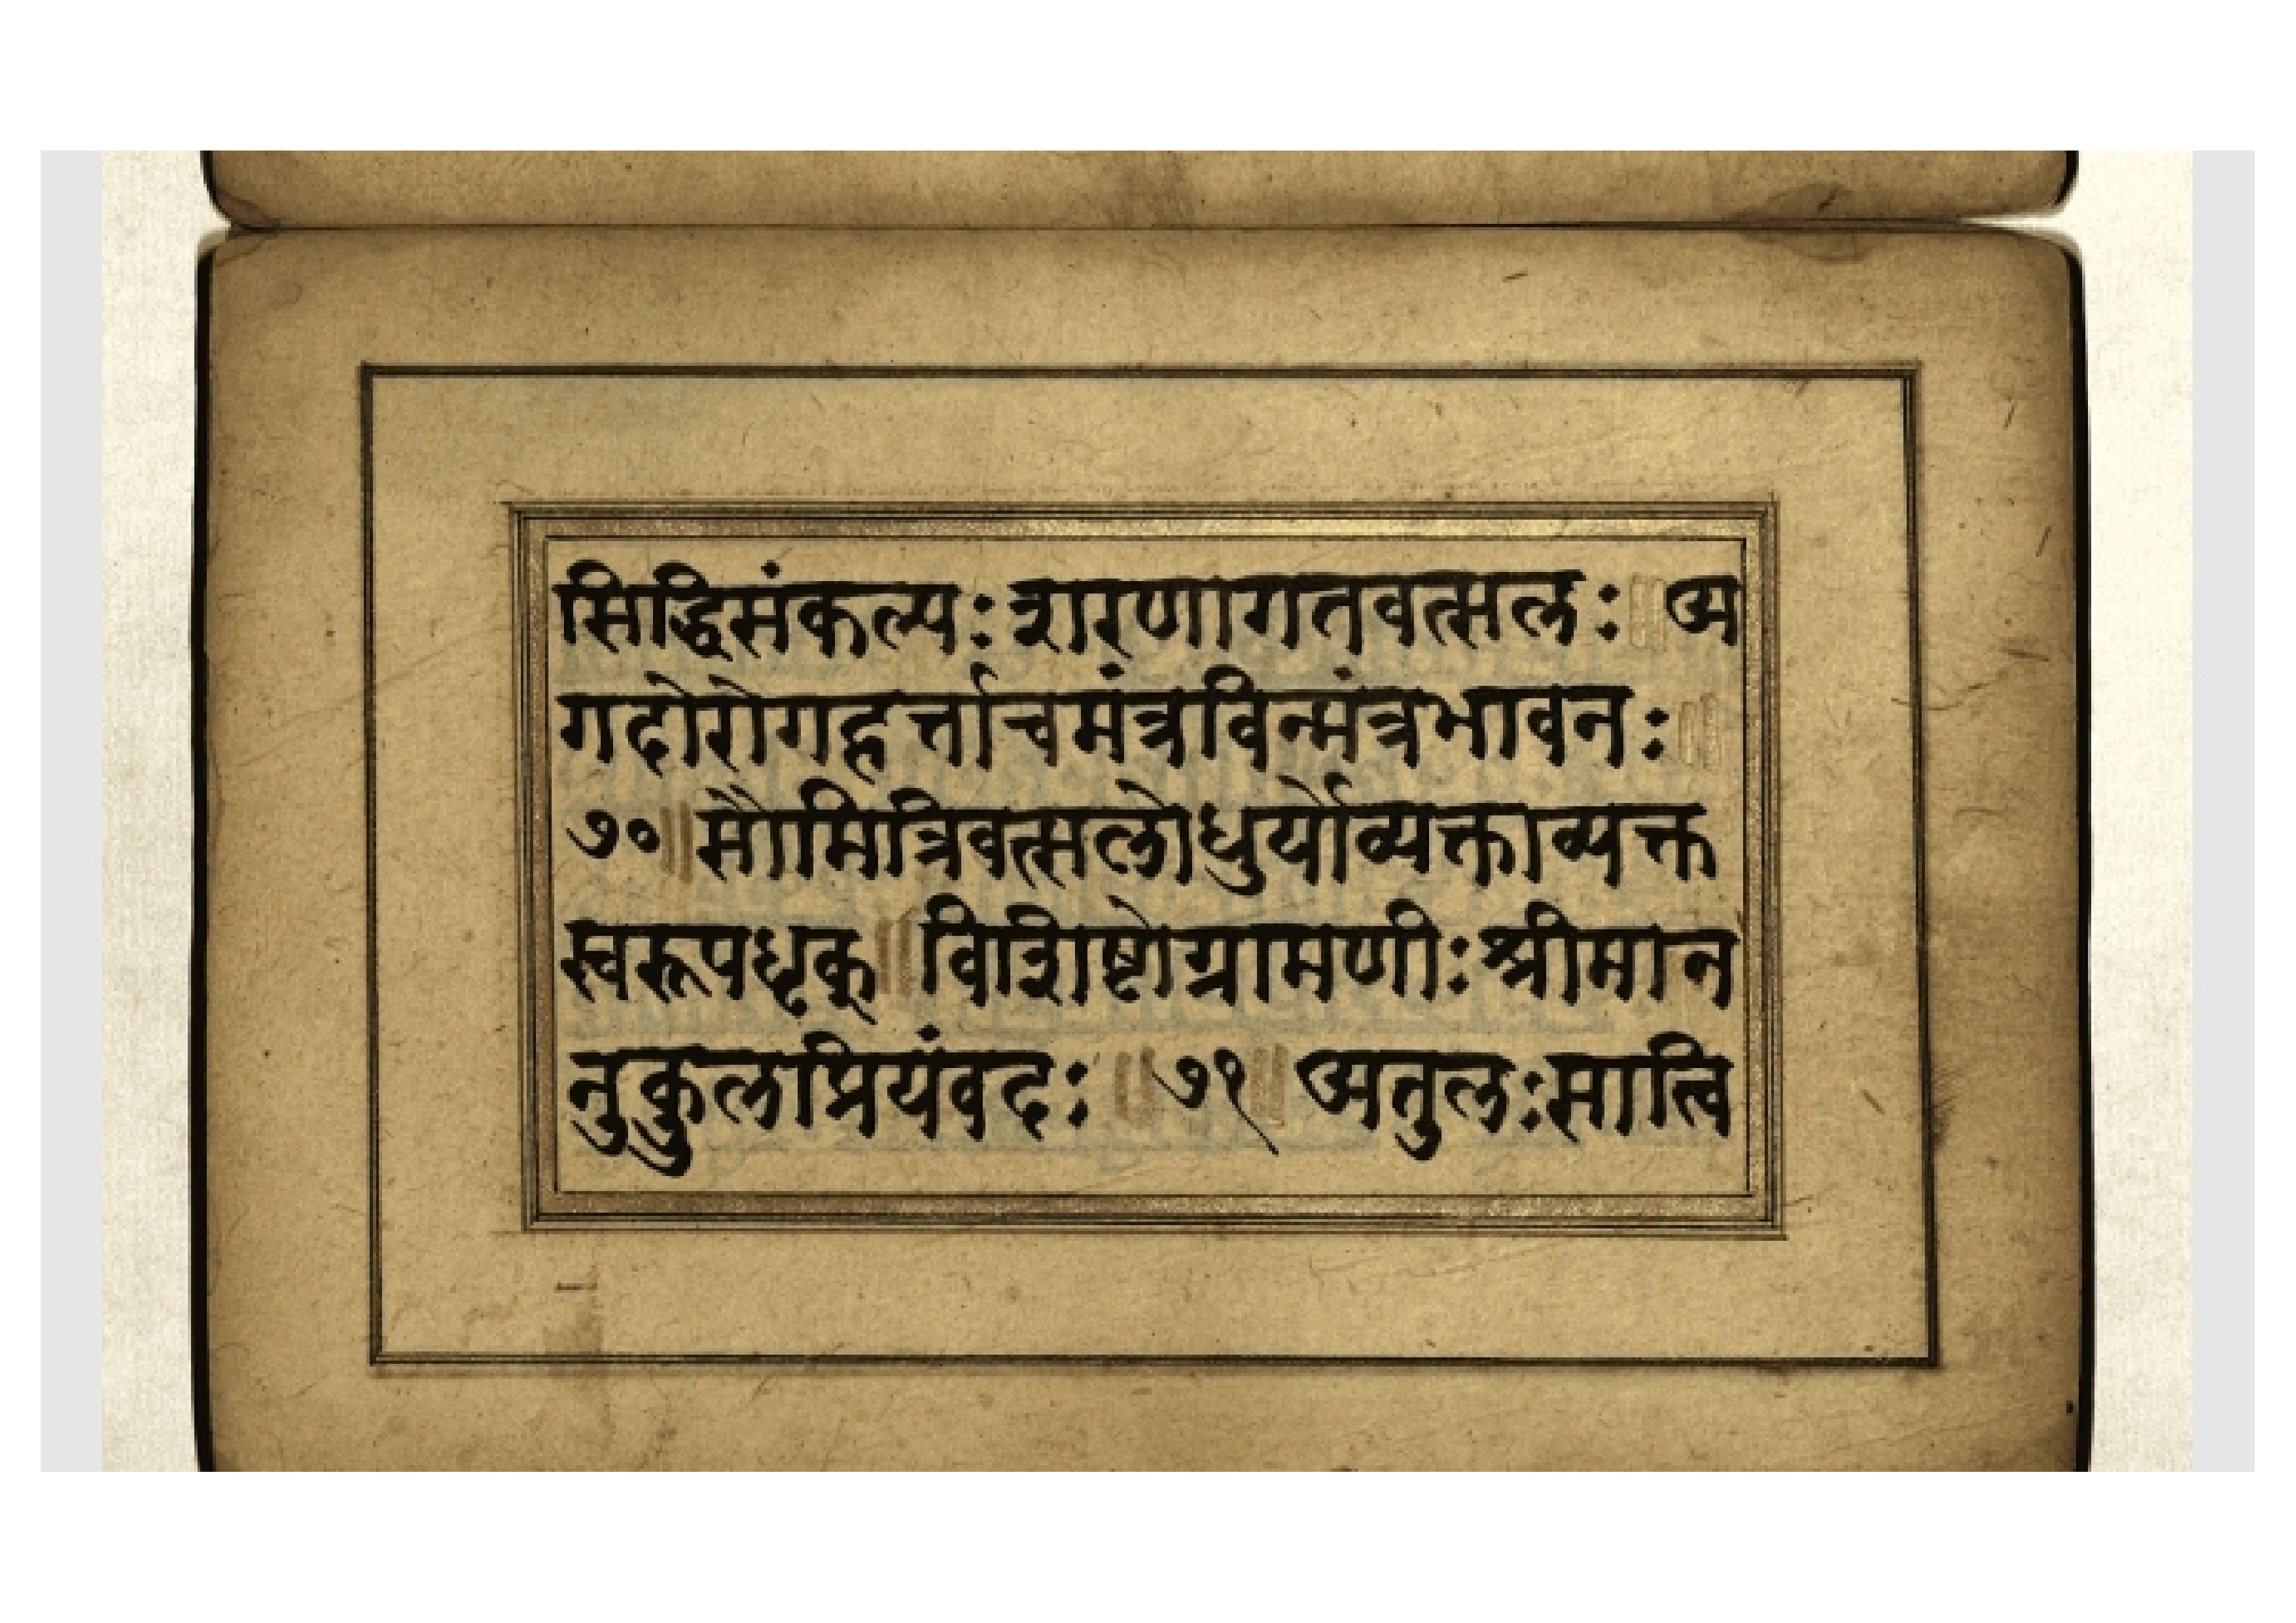 सिद्धिसंकल्पः शरणागतवत्सलः ॥ अ
गदोरोगहर्त्ताचमंत्रविन्मंत्रभावनः ॥
७० ॥ सौमित्रिवत्सलोधुर्योव्यक्ताव्यक्त
स्वरूपधृक् ॥ विशिष्टोग्रामणीः श्रीमान
नुकुलप्रियंवदः ॥ ७१ ॥ अतुलः सात्वि